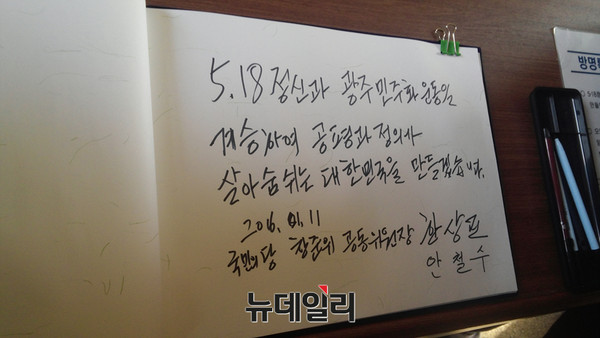 5.18 정신과 광주 민주화 운동을
계승하여 공평과 정의가
살아 숨쉬는 대한민국을 만들겠습니다.
2016. 01. 11
국민의당 창준위 공동위원장 한상진
안철수
방명
뉴데일리